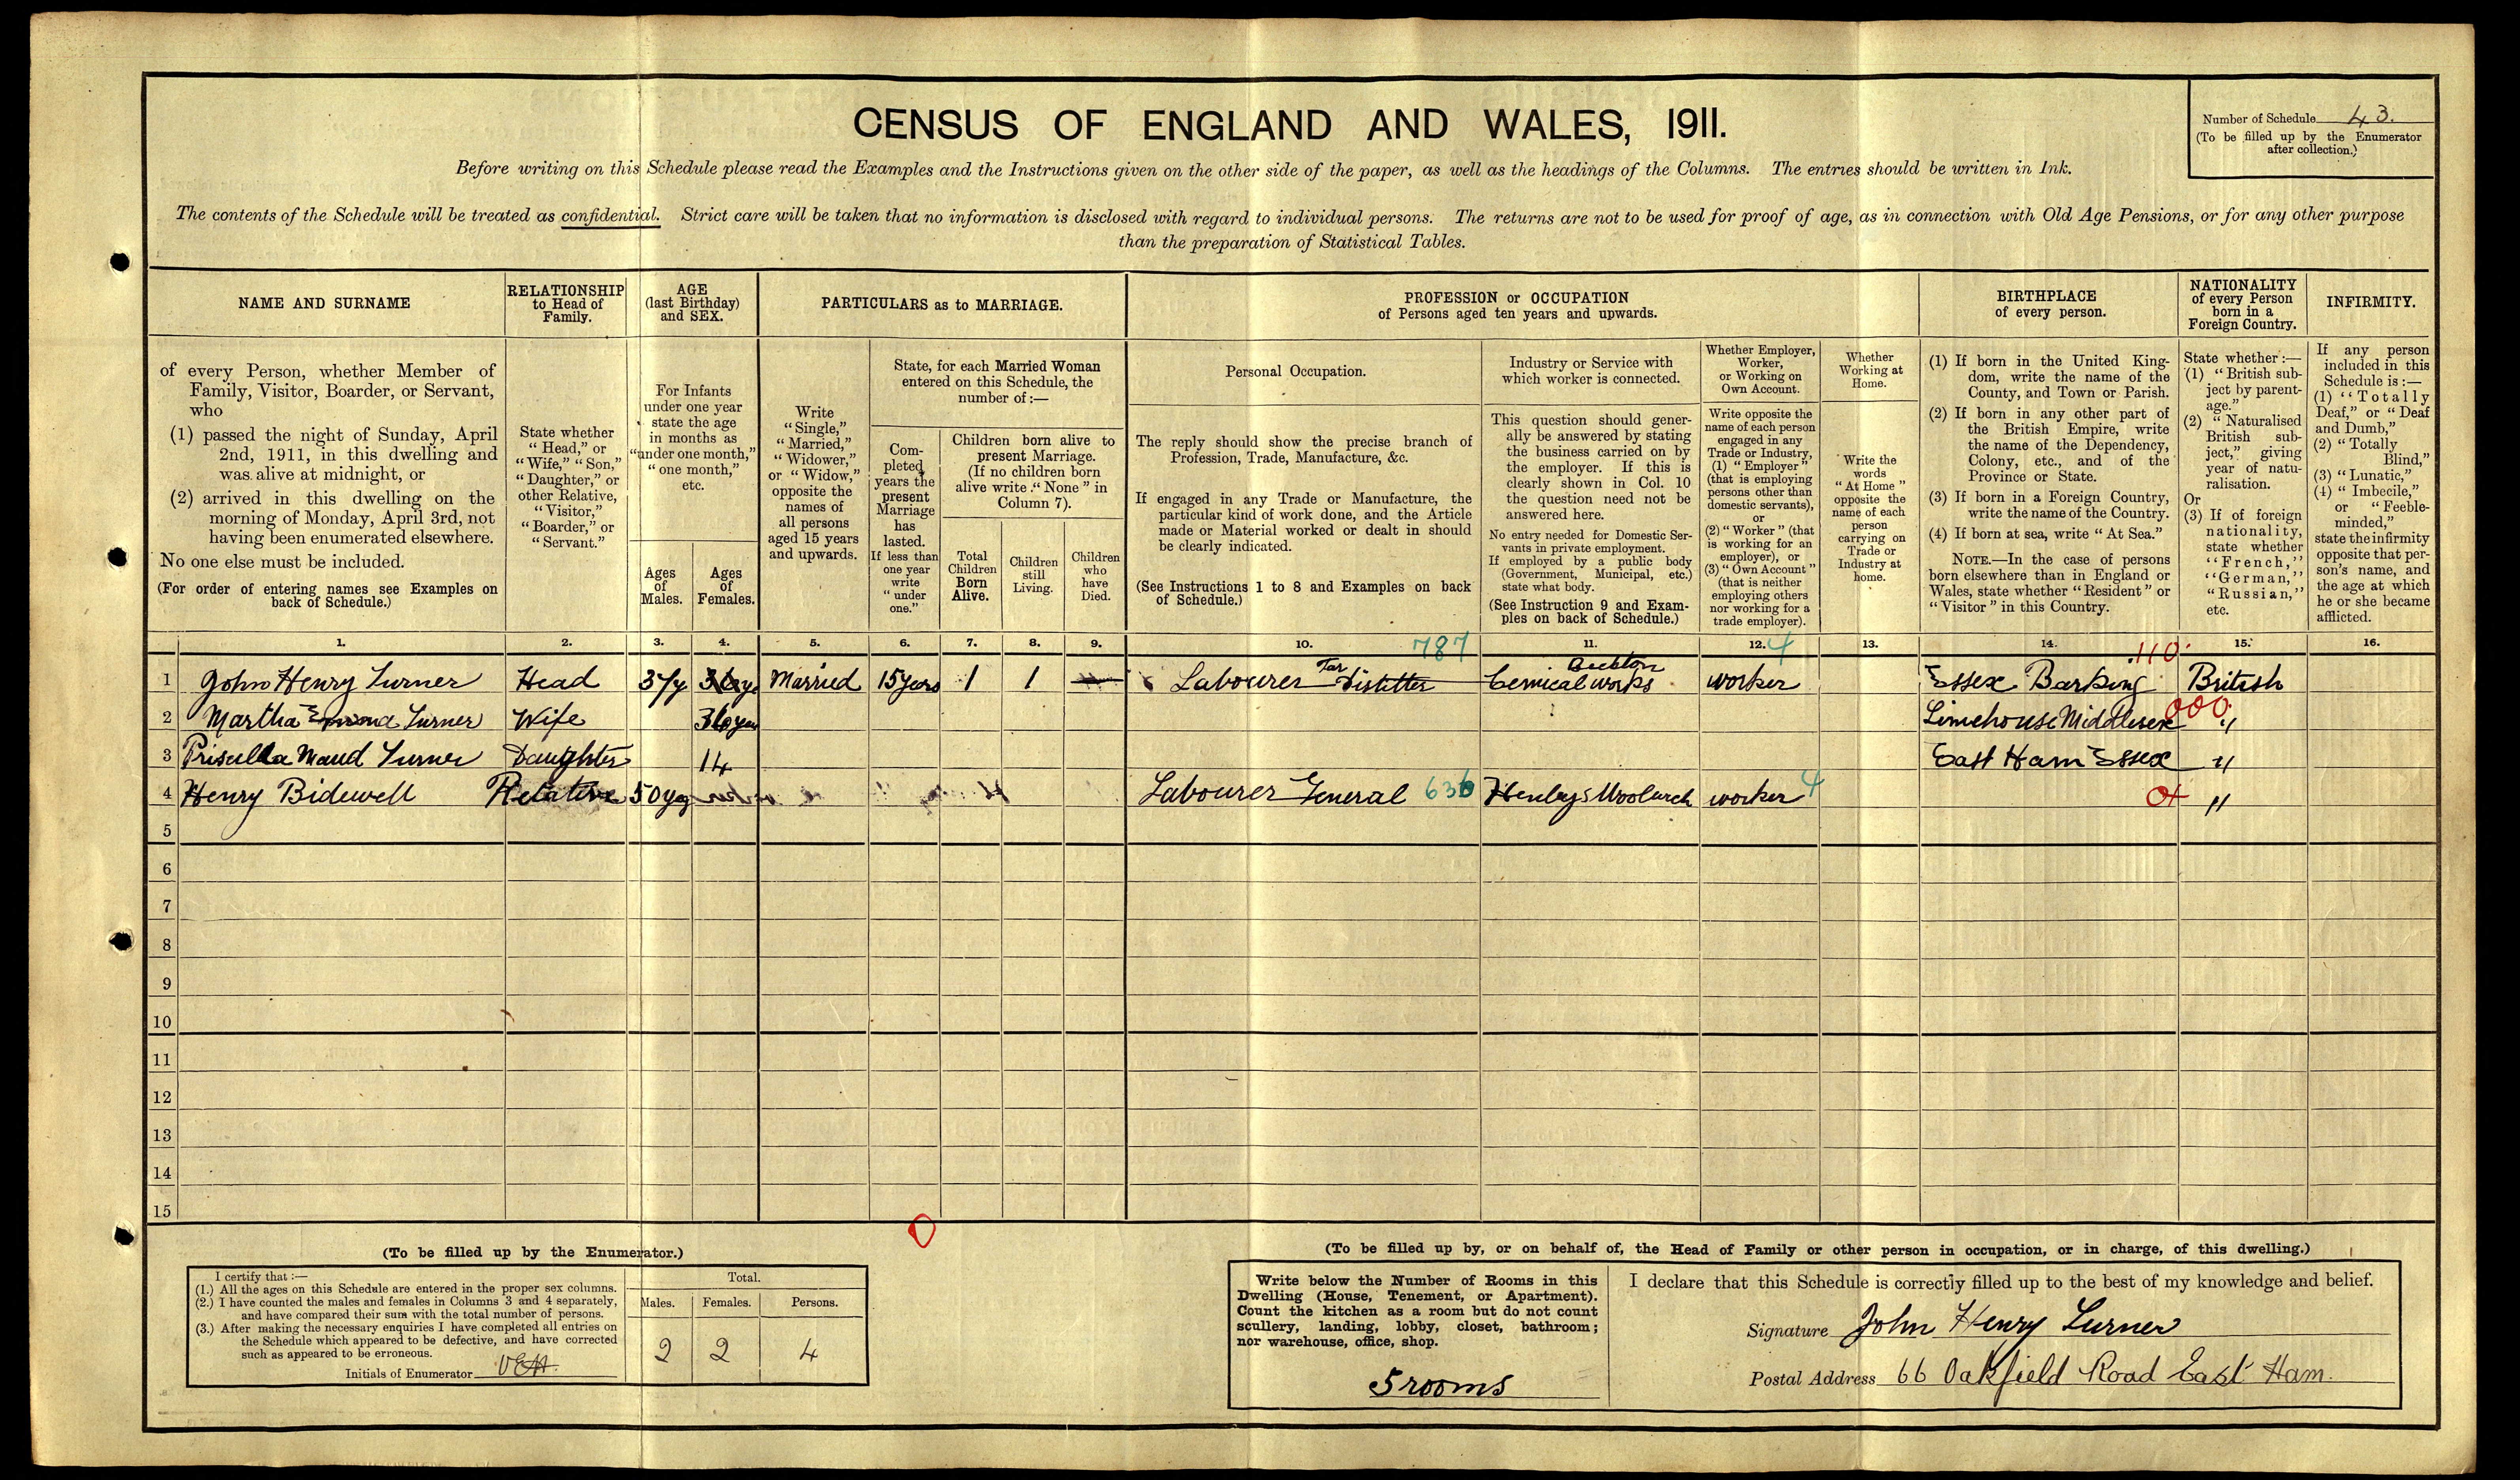 CENSUS OF ENGLAND AND WALES, 1911.
Number of Schedule 43.
(To be filled up by the Enumerator
after collection.)
Before writing on this Schedule please read the Examples and the Instructions given on the other side of the paper, as well as the headings of the Columns. The entries should be written in Ink.
The contents of the Schedule will be treated as confidential. Strict care will be taken that no information is disclosed with regard to individual persons. The returns are not to be used for proof of age, as in connection with Old Age Pensions, or for any other purpose
than the preparation of Statistical Tables.
NAME AND SURNAME
of every Person, whether Member of
Family, Visitor, Boarder, or Servant,
who
(1) passed the night of Sunday, April
2nd, 1911, in this dwelling and
was alive at midnight, or
(2) arrived in this dwelling on the
morning of Monday, April 3rd, not
having been enumerated elsewhere.
No one else must be included.
(For order of entering names see Examples on
back of Schedule.)
RELATIONSHIP
to Head of
Family.
State whether
"Head," or
"Wife," "Son,"
"Daughter," or
other Relative,
"Visitor,"
"Boarder," or
"Servant."
AGE
(last Birthday)
and SEX.
For Infants
under one year
state the age
in months as
"under one month,"
"one month,"
etc.
Ages
of
Males.
Ages
of
Females.
PARTICULARS as to MARRIAGE.
Write
"Single,"
"Married,"
"Widower,"
or "Widow,"
opposite the
names of
all persons
aged 15 years
and upwards.
State, for each Married Woman
entered on this Schedule, the
number of:—
Com-
pleted
years the
present
Marriage
has
lasted.
If less than
one year
write
"under
one."
Children born alive to
present Marriage.
(If no children born
alive write "None" in
Column 7).
Total
Children
Born
Alive.
Children
still
Living.
Children
who
have
Died.
PROFESSION or OCCUPATION
of Persons aged ten years and upwards.
Personal Occupation.
The reply should show the precise branch of
Profession, Trade, Manufacture, &c.
If engaged in any Trade or Manufacture, the
particular kind of work done, and the Article
made or Material worked or dealt in should
be clearly indicated.
(See Instructions 1 to 8 and Examples on back
of Schedule.)
Industry or Service with
which worker is connected.
This question should gener-
ally be answered by stating
the business carried on by
the employer. If this is
clearly shown in Col. 10
the question need not be
answered here.
No entry needed for Domestic Ser-
vants in private employment.
If employed by a public body
(Government, Municipal, etc.)
state what body.
(See Instruction 9 and Exam-
ples on back of Schedule.)
Whether Employer,
Worker,
or Working on
Own Account.
Write opposite the
name of each person
engaged in any
Trade or Industry,
(1) "Employer"
(that is employing
persons other than
domestic servants),
or
(2) "Worker" (that
is working for an
employer), or
(3) "Own Account"
(that is neither
employing others
nor working for a
trade employer).
Whether
Working at
Home.
Write the
words
"At Home"
opposite the
name of each
person
carrying on
Trade or
Industry at
home.
BIRTHPLACE
of every person.
(1) If born in the United King-
dom, write the name of the
County, and Town or Parish.
(2) If born in any other part of
the British Empire, write
the name of the Dependency,
Colony, etc., and of the
Province or State.
(3) If born in a Foreign Country,
write the name of the Country.
(4) If born at sea, write "At Sea."
NOTE.—In the case of persons
born elsewhere than in England or
Wales, state whether "Resident" or
"Visitor" in this Country.
NATIONALITY
of every Person
born in a
Foreign Country.
State whether:—
(1) "British sub-
ject by parent-
age."
(2) "Naturalised
British sub-
ject," giving
year of natu-
ralisation.
Or
(3) If of foreign
nationality,
state whether
"French,"
"German,"
"Russian,"
etc.
INFIRMITY.
If any person
included in this
Schedule is:—
(1) "Totally
Deaf," or "Deaf
and Dumb,"
(2) "Totally
Blind,"
(3) "Lunatic,"
(4) "Imbecile,"
or "Feeble-
minded,"
state the infirmity
opposite that per-
son's name, and
the age at which
he or she became
afflicted.
1. 2. 3. 4. 5. 6. 7. 8. 9. 10. 787 11. 12. 4 13. 14. 15. 16.
1 John Henry Turner Head 37y 36ye Married 15years 1 1 — Labourer Tar Distiller Beckton Cemical works worker Essex Barking 110 British
2 Martha Turner Wife 36yea Limehouse Middlesex 000 "
3 Priscilla Maud Turner Daughter 14 East Ham Essex "
4 Henry Bidewell Relative 50ye Labourer General 636 Henleys Woolwich worker 4 "
5
6
7
8
9
10
11
12
13
14
15
(To be filled up by the Enumerator.)
I certify that:—
(1.) All the ages on this Schedule are entered in the proper sex columns.
(2.) I have counted the males and females in Columns 3 and 4 separately,
and have compared their sum with the total number of persons.
(3.) After making the necessary enquiries I have completed all entries on
the Schedule which appeared to be defective, and have corrected
such as appeared to be erroneous.
Initials of Enumerator
Total.
Males. Females. Persons.
2 2 4
(To be filled up by, or on behalf of, the Head of Family or other person in occupation, or in charge, of this dwelling.)
Write below the Number of Rooms in this
Dwelling (House, Tenement, or Apartment).
Count the kitchen as a room but do not count
scullery, landing, lobby, closet, bathroom;
nor warehouse, office, shop.
5 rooms
I declare that this Schedule is correctly filled up to the best of my knowledge and belief.
Signature John Henry Turner
Postal Address 66 Oakfield Road East Ham.